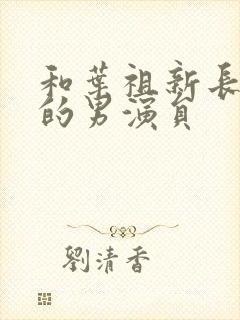 和葉祖新長
的男演員
劉清香